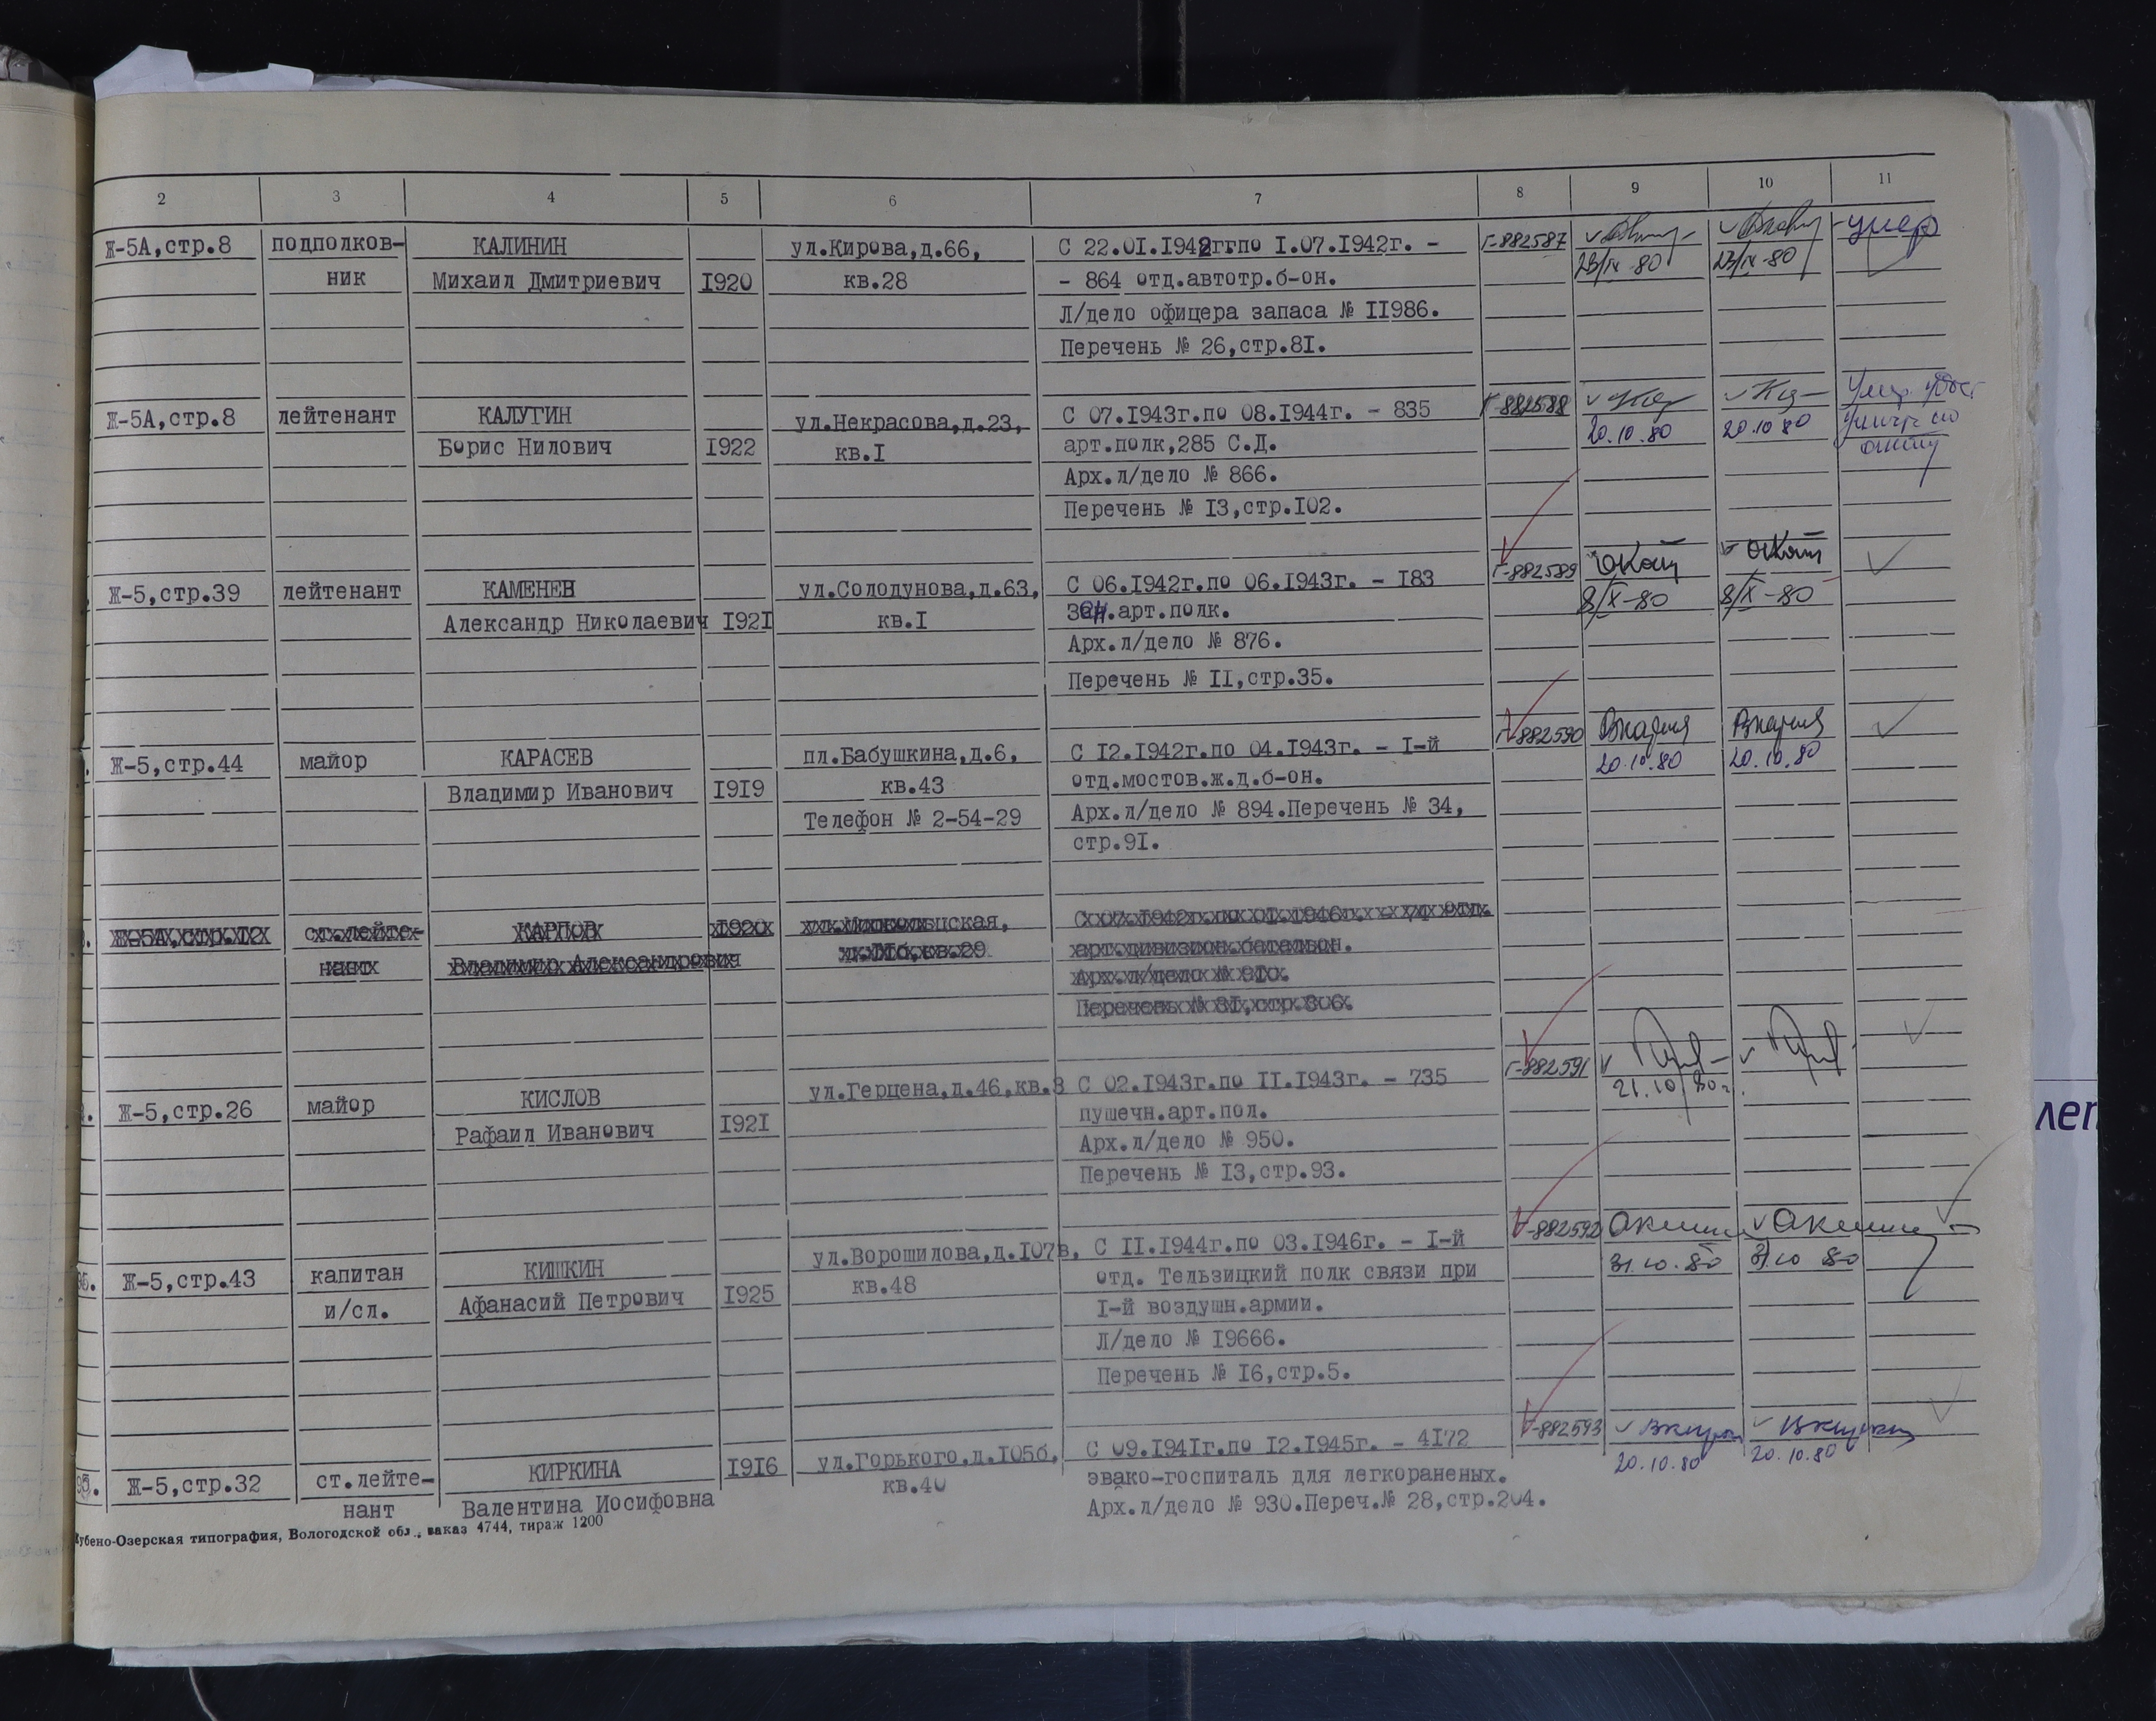 2 3 4 5 6 7 8 9 10 11
Ж-5А,стр.8 подполков- КАЛИНИН ул.Кирова,д.66, С 22.01.1942гг.по I.07.1942г. - Г-882587 умер
ник Михаил Дмитриевич I920 кв.28 - 864 отд.автотр.б-он. 23/IX-80 23/IX-80
Л/дело офицера запаса № II986.
Перечень № 26,стр.8I.
Ж-5А,стр.8 лейтенант КАЛУГИН ул.Некрасова,д.23, С 07.I943г.по 08.I944г. - 835 Г-882588
Борис Нилович I922 кв.I арт.полк,285 С.Д. 20.10.80 20.10 80
Арх.л/дело № 866.
Перечень № I3,стр.I02.
Ж-5,стр.39 лейтенант КАМЕНЕВ ул.Солодунова,д.63, С 06.I942г.по 06.I943г. - I83 Г-882589
Александр Николаевич I92I кв.I Зен.арт.полк. 8/X-80 8/X-80
Арх.л/дело № 876.
Перечень № II,стр.35.
Ж-5,стр.44 майор КАРАСЕВ пл.Бабушкина,д.6, С I2.I942г.по 04.I943г. - I-й Г-882590
Владимир Иванович I9I9 кв.43 отд.мостов.ж.д.б-он. 20.10.80 20.10.80
Телефон № 2-54-29 Арх.л/дело № 894.Перечень № 34,
стр.9I.
Ж-5А,стр.I2 ст.лейте- КАРПОВ I920
нант Владимир Александрович кв.29
Ж-5,стр.26 майор КИСЛОВ ул.Герцена,д.46,кв.3 С 02.I943г.по II.I943г. - 735 Г-882591
Рафаил Иванович I92I пушечн.арт.пол. 21.10 80г.
Арх.л/дело № 950.
Перечень № I3,стр.93.
Ж-5,стр.43 капитан КИШКИН ул.Ворошилова,д.I07в, С II.I944г.по 03.I946г. - I-й Г-882592
и/сл. Афанасий Петрович I925 кв.48 отд. Тельзицкий полк связи при 31.10.80 31.10 80
I-й воздушн.армии.
Л/дело № I9666.
Перечень № I6,стр.5.
Ж-5,стр.32 ст.лейте- КИРКИНА I9I6 ул.Горького,д.I05б, С 09.I94Iг.по I2.I945г. - 4I72 Г-882593
нант Валентина Иосифовна кв.40 эвако-госпиталь для легкораненых. 20.10.80 20.10.80
Арх.л/дело № 930.Переч.№ 28,стр.204.
Кубено-Озерская типография, Вологодской обл., заказ 4744, тираж 1200